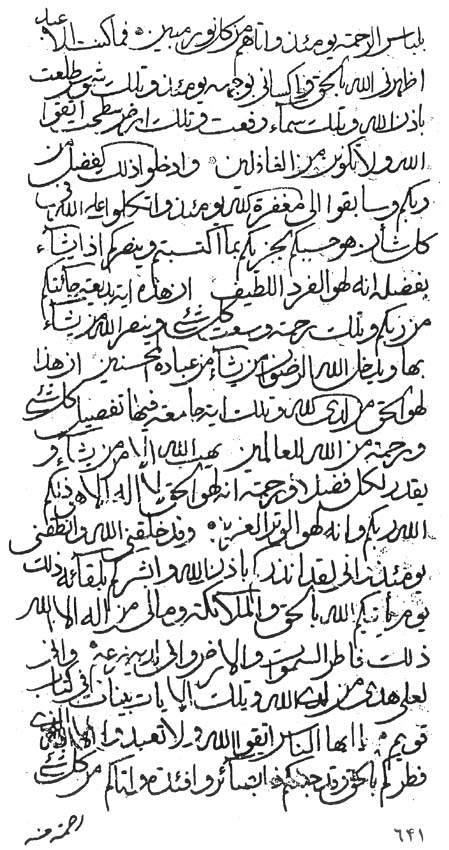 بلباس الرحمة يومئذ واتاهم من كل نور مبين فما كنت الا عبد
اظهرنى الله بالحق واكسانى بوجهه يومئذ وتلك شمس طلعت
باذن الله وتلك سماء رفعت وتلك ارض سطحت اتقوا
الله ولا تكونن من الغافلين وادخلوا ذلك الفضل من
ربكم وسابقوا الى مغفرة لله يومئذ واتكلوا على الله فى
كل شان هو حسبكم يجزيكم بما اكتسبتم وينصركم اذا يشاء
بفضله انه لهو الفرد اللطيف ان هذه اية بديعة جائتكم
من ربكم وتلك رحمة وسعت كل شئ وينصر الله من يشاء
بها ويدخل الله الرضوان من يشاء من عباده المحسنين ان هذا
لهو الحق من لدى الله وتلك اية جامعة فيها تفصيل كل شئ
ورحمة من الله للعالمين يهب الله الامر من يشاء و
يقدر لكل فضلا ورحمة انه لهو الحق لا اله الا هو ذلكم
الله ربكم وانه لهو الوتر العزيز وقد خلقنى الله وانطقنى
يومئذ انى لقد انذركم باذن الله وابشركم بلقائه ذلك
يوم ياتيكم الله بالحق والملائكة ومالى من اله الا الله
ذلك فاطر السموات والارض وانى
لعلى هدى من لدى الله وتلك الايات بينات فى كتاب
قويم يا ايها الناس اتقوا الله ولا تعبدوا الا الذى
فطركم بالحق وقد جعلكم ابصائر وافئدة واتاكم من كل شئ
رحمة منه
٦٤١